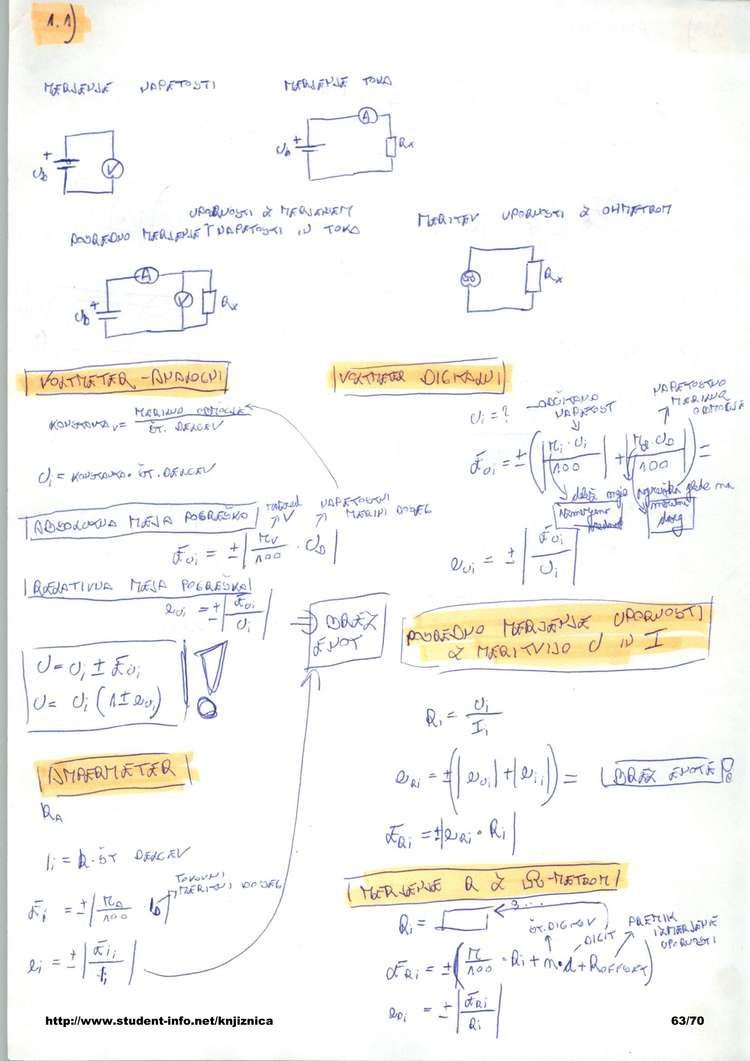 1.1)
MERJENJE NAPETOSTI
MERJENJE TOKA
+
U_D
V
+
U_D
A
R_x
UPORNOSTI Z MERJENJEM
POSREDNO MERJENJE NAPETOSTI IN TOKA
MERITEV UPORNOSTI Z OHMETROM
+
U_D
A
V
R_x
Ω
R_x
VOLTMETER - ANALOGNI
KONSTANTA_V = MERILNO OBMOČJE / ŠT. DELCEV
U_i = KONSTANTA · ŠT. DELCEV
ABSOLUTNA MEJA POGREŠKO
razred V
NAPETOSTNI MERILNI DOSEG
E_Ui = ± | r_V / 100 · U_D |
RELATIVNA MEJA POGREŠKA
e_Ui = ± | E_Ui / U_i |
BREZ ENOT
U = U_i ± E_Ui
U = U_i (1 ± e_Ui)
!
AMPERMETER
R_A
I_i = k · ŠT DELCEV
TOKOVNI MERILNI DOSEG
E_i = ± | r_A / 100 · I_D |
e_i = ± | E_Ii / I_i |
VOLTMETER DIGITALNI
U_i = ?
ODČITANO NAPETOST
NAPETOSTNO MERILNO OBMOČJE
E_Ui = ± ( | r_i · U_i / 100 | + | r_D · U_D / 100 | ) =
delež meje
pogreška glede na
merilni doseg
e_Ui = ± | E_Ui / U_i |
POSREDNO MERJENJE UPORNOSTI
Z MERITVIJO U IN I
R_i = U_i / I_i
e_Ri = ± ( | e_Ui | + | e_Ii | ) = BREZ ENOTE !
E_Ri = ± | e_Ri · R_i |
MERJENJE R Z Ω-METROM
R_i =
ŠT. DIGITOV
DIGIT
PREMIK IZMERJENE UPORNOSTI
E_Ri = ± ( r / 100 · R_i + n · d + R_OFFSET )
e_Ri = ± | E_Ri / R_i |
http://www.student-info.net/knjiznica
63/70